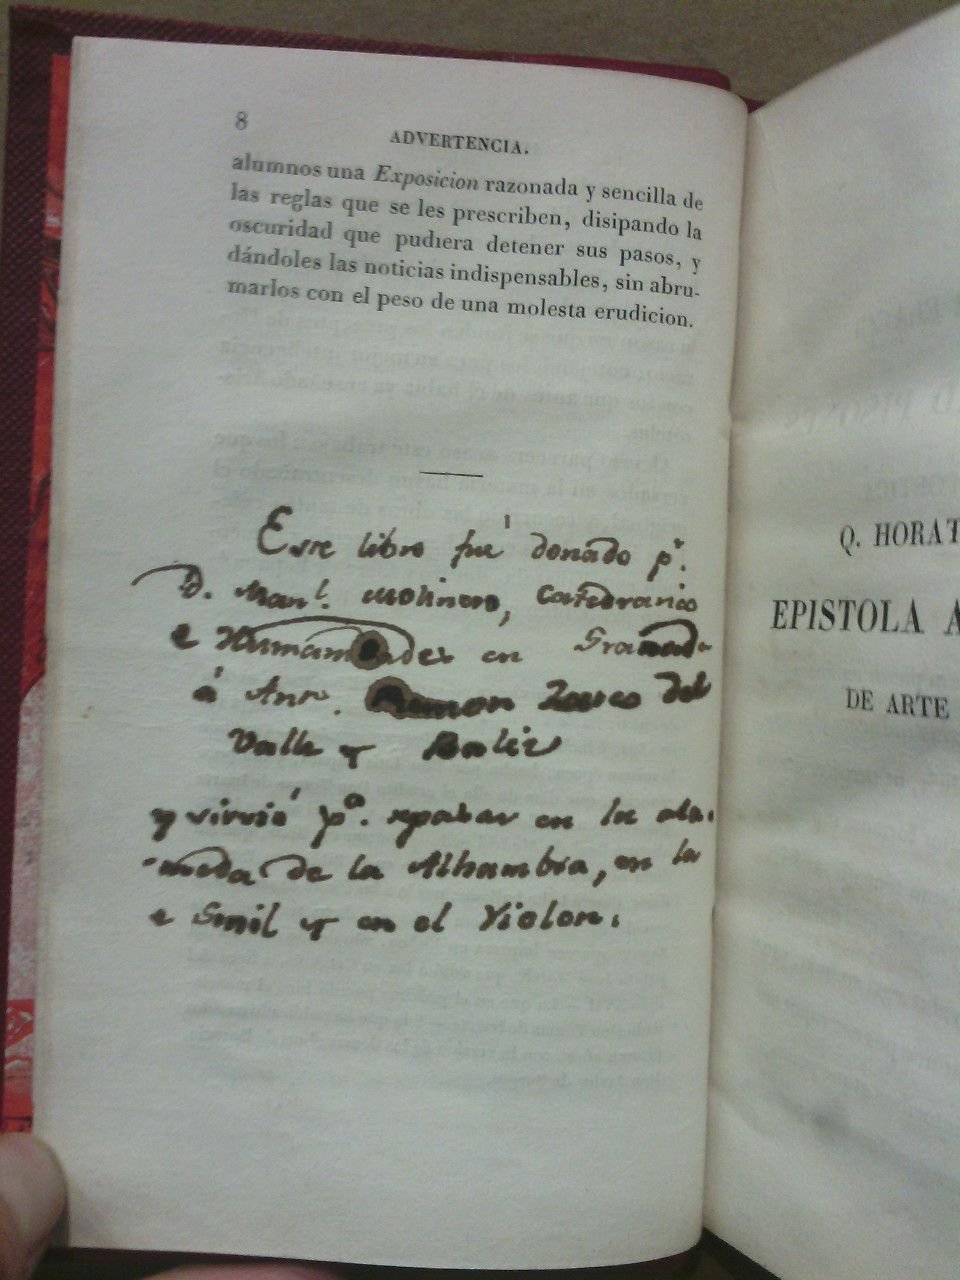 8
ADVERTENCIA.
alumnos una Exposicion razonada y sencilla de
las reglas que se les prescriben, disipando la
oscuridad que pudiera detener sus pasos, y
dándoles las noticias indispensables, sin abru-
marlos con el peso de una molesta erudicion.
Este libro fué donado pr.
D. Manl. Molinero, Catedratico
e Humanidades en Granada
á Antº. Ramon Zarco del
Valle y Balez
y sirvió pª. repasar en la ala-
meda de la Alhambra, en la
e Genil y en el Violon.
Q. HORAT
EPISTOLA A
DE ARTE